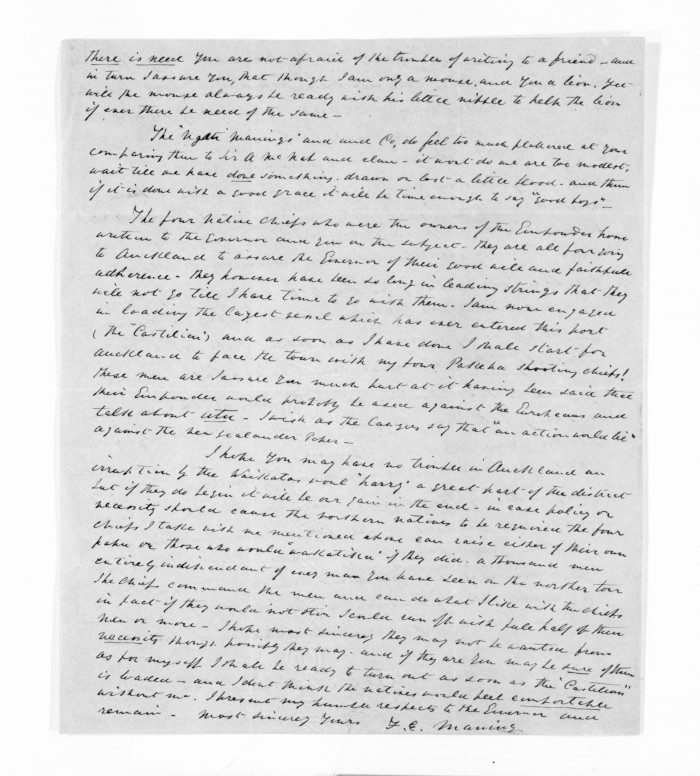 there is need you are not afraid of the trouble of writing to a friend – and
in turn I assure you, that though I am only a mouse, and you a lion. Yet
will the mouse always be ready with his little nibble to help the lion
if ever there be need of the same –
The "Ngati Manings" and and Co, do feel too much flattered at your
comparing them to Sir A McNab and clan – it wont do we are too modest,
wait till we have done something. drawn or lost a little blood – and then
if it is done with a good grace it will be time enough to say "good boys" –
The four Native Chiefs who were the owners of the Gunpowder have
written to the Governor and you on the subject – they are all four going
to Auckland to assure the Governor of their good will and faithful
adherence – they however have been so long in leading strings that they
will not go till I have time to go with them – I am now engaged
in loading the largest vessel which has ever entered this port
(the "Castilian") and as soon as I have done I shall start for
Auckland to face the town with my four Pakeha shooting chiefs!
these men are I assure you much hurt at it having been said that
their Gunpowder would probably be used against the Europeans and
talk about utu – I wish as the lawyers say that "an action would lie"
against the New Zealander Paper –
I hope you may have no trouble in Auckland an
irruption of the Waikatos would "harry" a great part of the district
but if they do begin it will be our gain in the end – in case policy or
necessity should cause the northern natives to be required the four
chiefs I take with me mentioned above can raise either of their own
hapu or those who would "wakatika" if they did. a thousand men
entirely independant of every man you have seen on the northern tour
The Chiefs command the men and can do what I like with the chiefs
in fact if they would not stir I could run off with full half of their
men or more – I hope most sincerely they may not be wanted from
necessity though possibly they may. and if they are you may be sure of them
as for myself I shall be ready to turn out as soon as the "Castilian"
is loaded – and I dont think the natives would feel comfortable
without me. I present my humble respects to the Governor and
remain – most sincerely Yours F. E. Maning